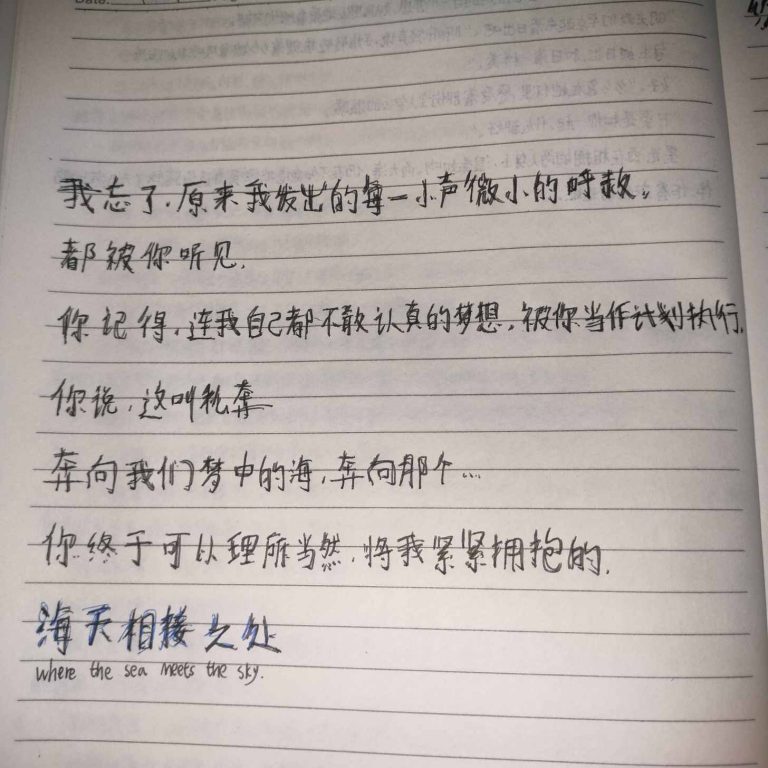 我忘了，原来我发出的每一小声微小的呼救，
都被你听见.
你记得，连我自己都不敢认真的梦想，被你当作计划执行.
你说，这叫私奔
奔向我们梦中的海，奔向那个…
你终于可以理所当然，将我紧紧拥抱的.
海天相接之处
where the sea meets the sky.